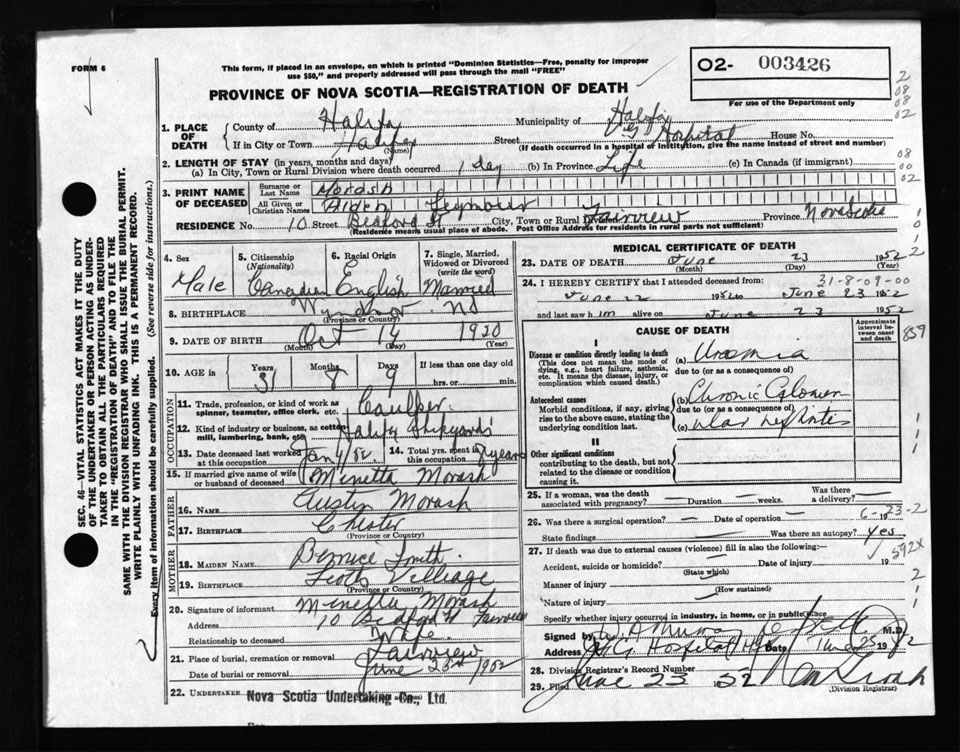 FORM 6
This form, if placed in an envelope, on which is printed "Dominion Statistics—Free, penalty for improper
use $50," and properly addressed will pass through the mail "FREE"
PROVINCE OF NOVA SCOTIA—REGISTRATION OF DEATH
O2- 003426
For use of the Department only
2
08
08
02
1. PLACE OF DEATH
County of Halifax Municipality of Halifax
If in City or Town Halifax Street V G Hospital House No.
(Name) (If death occurred in a hospital or institution, give the name instead of street and number)
2. LENGTH OF STAY (in years, months and days)
(a) In City, Town or Rural Division where death occurred 1 day (b) In Province Life (c) In Canada (if immigrant)
08
00
02
3. PRINT NAME OF DECEASED
Surname or Last Name Morash
All Given or Christian Names Alden Seymour
RESIDENCE No. 10 Street Bedford St City, Town or Rural Division Fairview Province Nova Scotia
(Residence means usual place of abode. Post Office Address for residents in rural parts not sufficient)
4. Sex Male
5. Citizenship (Nationality) Canadian
6. Racial Origin English
7. Single, Married, Widowed or Divorced (write the word) Married
8. BIRTHPLACE Windsor NS
(Province or Country)
9. DATE OF BIRTH Oct 14 1920
(Month) (Day) (Year)
10. AGE in Years 31 Months 8 Days 9 If less than one day old
hrs. or min.
OCCUPATION
11. Trade, profession, or kind of work as spinner, teamster, office clerk, etc. Caulker
12. Kind of industry or business, as cotton mill, lumbering, bank, etc. Halifax Shipyards
13. Date deceased last worked at this occupation Jan 4/52 14. Total yrs. spent in this occupation 7 years
15. If married give name of wife or husband of deceased Minetta Morash
FATHER
16. NAME Austin Morash
17. BIRTHPLACE Chester
(Province or Country)
MOTHER
18. MAIDEN NAME Bernice Smith
19. BIRTHPLACE Scotts Village
(Province or Country)
20. Signature of informant Minetta Morash
Address 10 Bedford St Fairview
Relationship to deceased Wife
21. Place of burial, cremation or removal Fairview
Date of burial or removal June 1952
22. UNDERTAKER Nova Scotia Undertaking Co., Ltd.
MEDICAL CERTIFICATE OF DEATH
23. DATE OF DEATH June 23 1952
(Month) (Day)
24. I HEREBY CERTIFY that I attended deceased from: 31-8-09-00
June 22 1952 to June 23 1952
and last saw him alive on June 23 1952
CAUSE OF DEATH
Approximate interval between onset and death
859
I
Disease or condition directly leading to death
(This does not mean the mode of dying, e.g., heart failure, asthenia, etc. It means the disease, injury, or complication which caused death.)
(a) Uraemia
due to (or as a consequence of)
Antecedent causes
Morbid conditions, if any, giving rise to the above cause, stating the underlying condition last.
(b) Chronic Glomer
due to (or as a consequence of)
(c) ular Nephritis
II
Other significant conditions
contributing to the death, but not related to the disease or condition causing it.
25. If a woman, was the death associated with pregnancy? — Duration — weeks. Was there a delivery? —
26. Was there a surgical operation? — Date of operation — 6-23-2
State findings — Was there an autopsy? yes
592X
27. If death was due to external causes (violence) fill in also the following:—
Accident, suicide or homicide? Date of injury 19
(State which)
Manner of injury
(How sustained)
Nature of injury
Specify whether injury occurred in industry, in home, or in public place
Signed by M.D.
Address V.G. Hospital Hfx Date June 25 1952
28. Division Registrar's Record Number
29. Filed June 25 1952
(Division Registrar)
SEC. 46—VITAL STATISTICS ACT MAKES IT THE DUTY
OF THE UNDERTAKER OR PERSON ACTING AS UNDER-
TAKER TO OBTAIN ALL THE PARTICULARS REQUIRED
IN THE "REGISTRATION OF DEATH" AND TO FILE THE
SAME WITH THE DIVISION REGISTRAR WHO SHALL ISSUE THE BURIAL PERMIT.
WRITE PLAINLY WITH UNFADING INK. THIS IS A PERMANENT RECORD.
Every item of information should be carefully supplied. (See reverse side for instructions.)